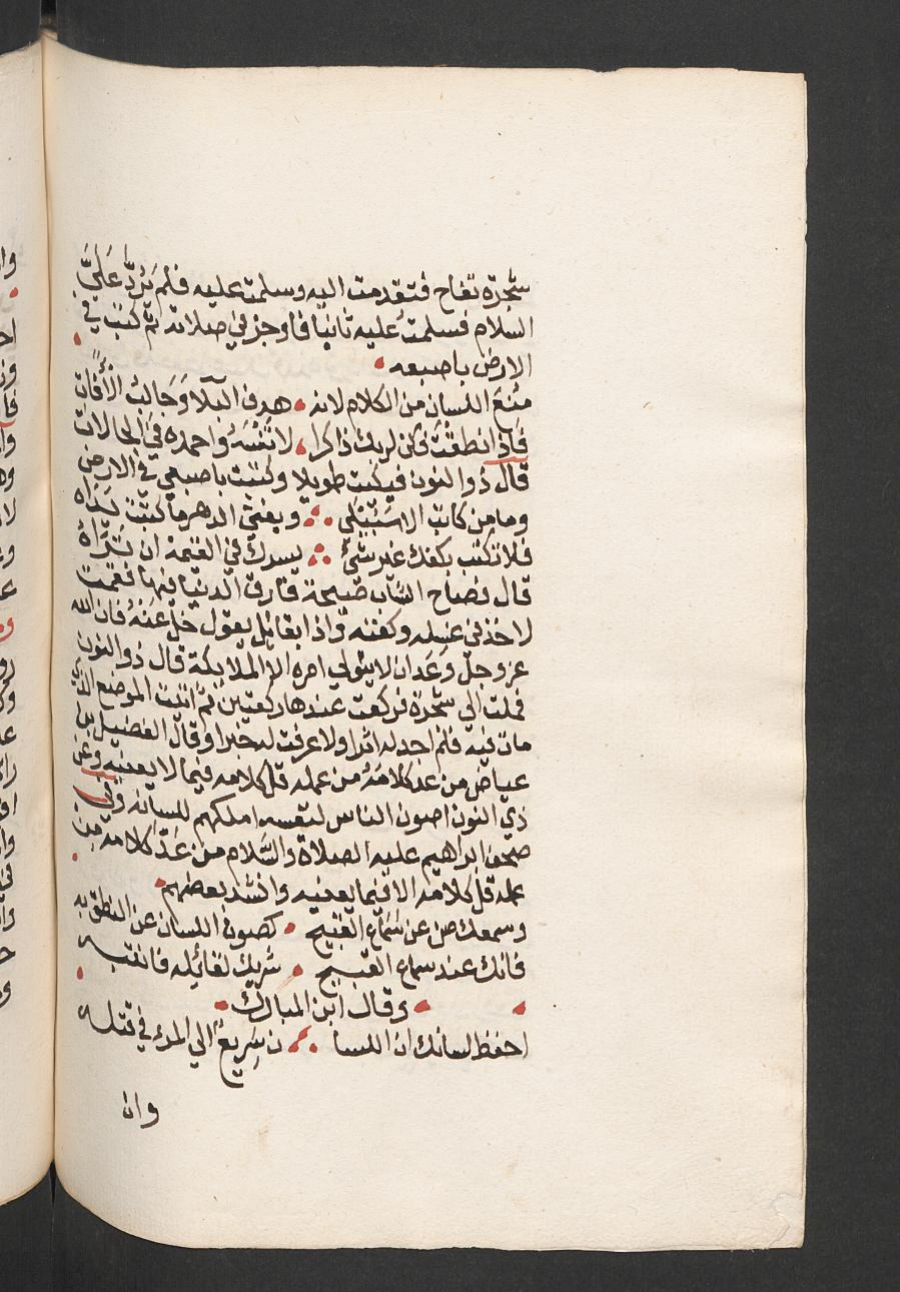 شجرة تفاح فتقدمت اليه وسلمت عليه فلم يَرُدَّ عَلَيَّ
السلام فسلمتُ عليه ثانيا فاوجز في صلاته ثم كتب في
الارض باصبعه
مُنعَ اللسان من الكلام لانه هدف البلا وَجَالبُ الأفات
فَاذِ انطقتَ فكن لربك ذاكرا لا تنْسَهُ واحمده في الحالات
قال ذو النون فبكيت طويلا وكتبت باصبعي في الارض
وما من كاتب الا سَيَبْلَي ويفني الدهر ما كتبت يداه
فلا تكتب بكفك غير شئ يسرك في القيمة ان تراه
قال فصاح الشاب صيحة فارق الدنيا فيها فقمت
لاخذ في غسله وكفنه واذا بقائل يقول خلّ عَنْهُ فان الله
عز وجل وَعَد ان لا يتولي امره الا الملايكة قال ذو النون
فملت الي شجرة فركعت عندها ركعتين ثم اتيت الموضع الذي
مات فيه فلم اجد له اثرا ولا عرفت له خبرا وقال الفضيل بن
عياض من عد كلامَهُ من عمله قل كلامه فيما لا يعنيه وعن
ذي النون اصون الناس لنفسه املكهم للسانه وفي
صحف ابراهيم عليه الصلاة والسَّلام من عَدَّ كلامه من
عمله قل كلامه الا فيما يعنيه وانشد بعضهم
وسمعك صن عن سَمَاع القبيح كصون اللسان عن النطق به
فانك عند سماع القبيح شريك لقائله فانتبه
وقال ابن المبارك
احفظ لسانك ان اللسا ن سَرِيعٌ الي المرء في قتله
وان